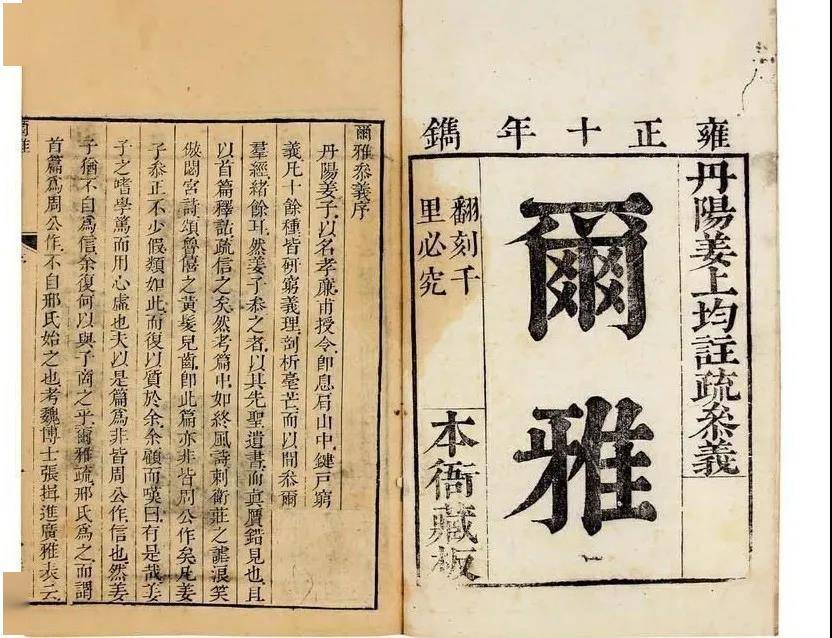 雍正十年鐫
丹陽姜上均註疏叅義
爾雅
翻刻千
里必究
本衙藏板
爾雅叅義序
丹陽姜子以名孝廉甫授令卽息肩山中鍵戸窮
義凡十餘種皆研窮義理剖析毫芒而以閒叅爾
羣經緒餘耳然姜子叅之者以其先聖遺書而真贋錯見也且
以首篇釋詁疏信之矣然考篇中如終風詩刺衛莊之謔浪笑
傲閟宮詩頌魯僖之黃髮兒齒卽此篇亦非皆周公作矣凡姜
子叅正不少假類如此而復以質於余余顧而嘆曰有是哉姜
子之嗜學篤而用心虛也夫以是篇爲非皆周公作信也然姜
子猶不自爲信余復何以與子商之乎爾雅疏邢氏爲之而謂
首篇爲周公作不自邢氏始之也考魏博士張揖進廣雅表云
爾雅